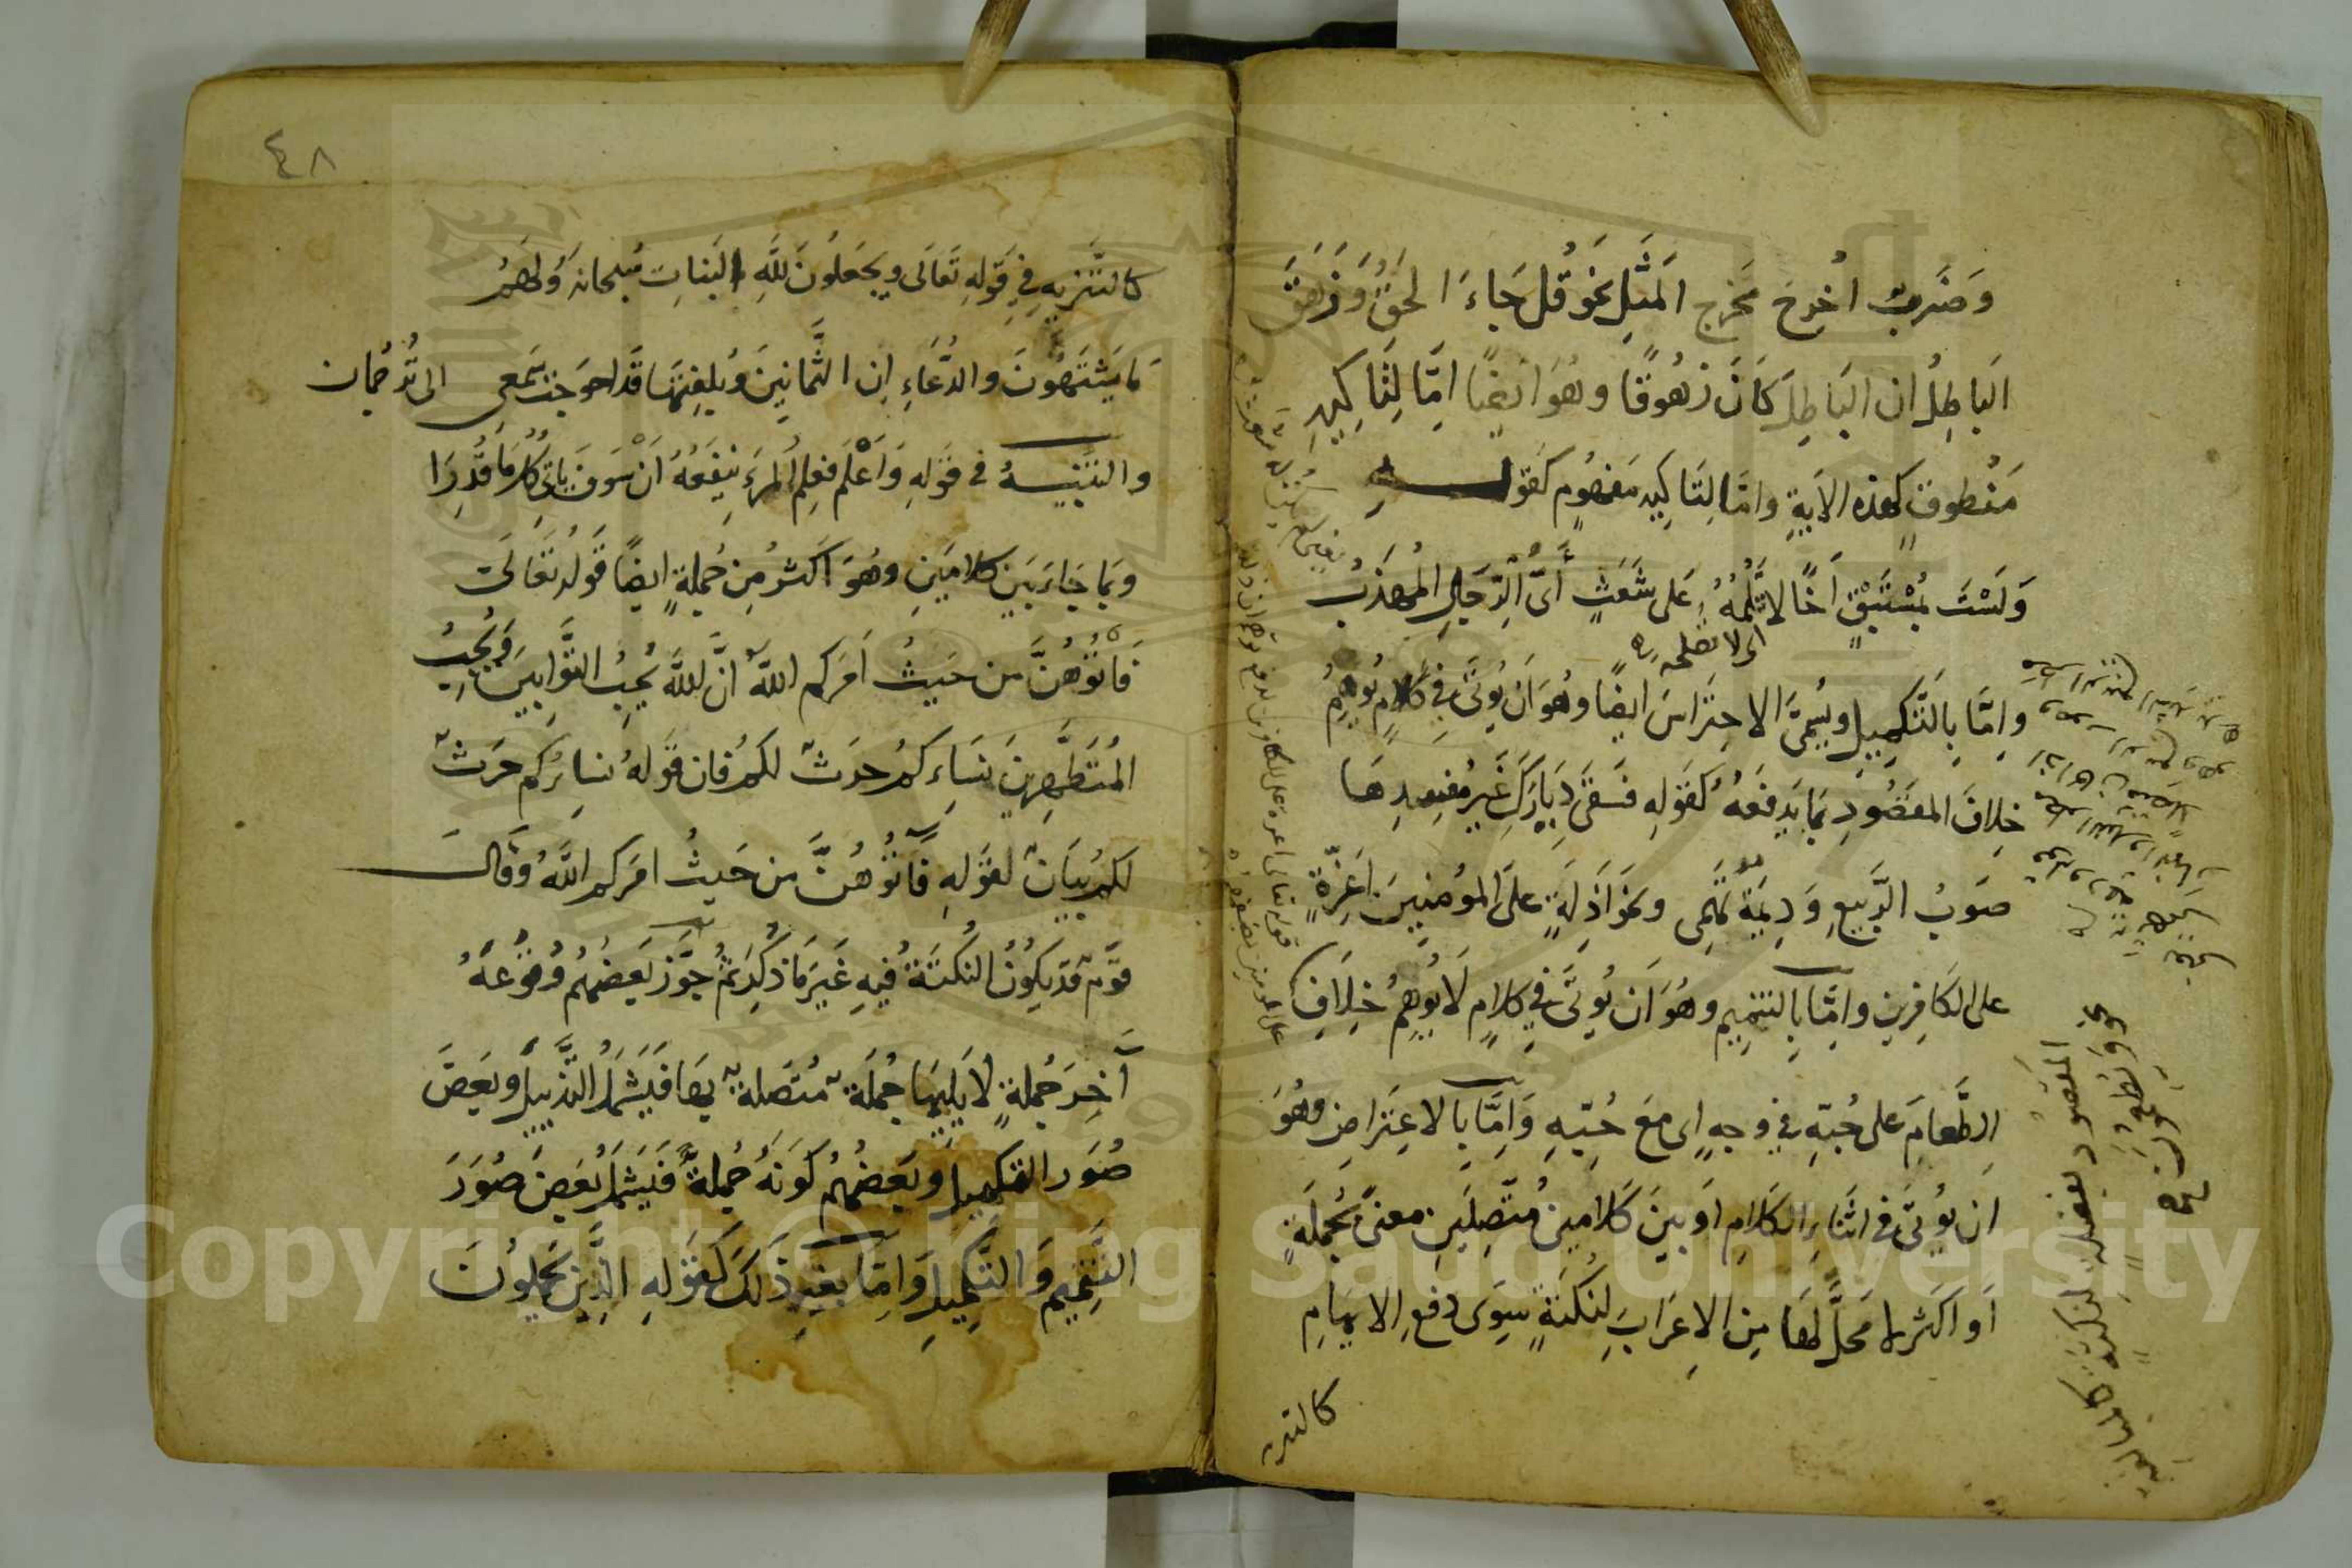 وَضَربٌ اُخرِجَ مَخرج المَثَلِ نحو قُل جَاءَ الحَقُّ وَزَهَقَ
البَاطِلُ ان البَاطِلَ كَانَ زهُوقًا وهُوَ ايضًا امَّا لِتَاكِيدِ
مَنْطوقٍ كهذه الاَيةِ وامَّا لِتَاكِيدِ مَفهُومٍ كَقَولــــهِ
وَلَسْتَ بمُسْتَبْقٍ اَخًا لاتَلُمُّهُ عَلى شَعَثٍ أَىُّ الرّجَالِ المُهذَّبُ
اى لا تصلحه
وامَّا بِالتَّكمِيلِ ويُسَمَّى الاحتِرَاسَ ايضًا وهُوَ اَن يُؤتَى فِي كَلامٍ يُوهِمُ
خِلافَ المقصُودِ بمَا يَدفَعُهُ كَقَولِهِ فَسَقَى دِيَارَكِ غَيرَ مُفسِدِهَا
صَوبُ الرَّبيعِ وَدِيمَةٌ تَهمِى ونحَو اَذِلَّةٍ علَى المؤمنِينَ اَعِزَّةٍ
على الكَافِرِين وامَّا بِالتتمِيم وهُوَ اَن يُؤتَى فِي كلامٍ لَا يُوهِمُ خِلَافَ
الطَّعامَ على حُبّهِ في وجهٍ اى مَعَ حُبّهِ وَامَّا بِالاعتِرَاضِ وهُوَ
اَن يُؤتَى في اثنَاءِ الكَلامِ اَو بينَ كَلامَينِ مُتَّصِلَينِ معنًى بجُملَةٍ
اَو اكثَر لا مَحلَّ لهَا مِن الاِعرَابِ لِنُكتَةٍ سِوَى دفعِ الايهَامِ
كالتنزيه
المقصُود بفضلة لنكتة كالمبالغة
نحو وَيُطعِمُونَ صح
٤٨
كالتَّنزِيهِ فِي قَولِهِ تَعَالَى ويجعَلُونَ للَّهِ البَنَاتِ سُبحانه وَلَهُم
مَا يَشتَهُونَ والدُّعَاءِ اِن الثَّمَانِينَ وَبُلِّغتَهَا قَد احوَجَت سَمعِى الى تُرجُمان
والتنبِيهِ في قَولِهِ وَاعْلَم فَعِلمُ المَرءِ يَنفَعُهُ اَنْ سَوفَ يَاتِي كُلُّ مَا قُدِرَا
وَمِمَا جَاءَ بَينَ كلامَينِ وهُوَ اَكثرُ مِن جُملةٍ ايضًا قَولُهُ تَعَالَى
فَاتُوهُنَّ من حَيثُ اَمَركم اللَّهُ انَّ اللَّهَ يُحِبُّ التَّوَّابِينَ وَيُحِبُّ
المُتَطَهِّرِينَ نِسَاءكُم حَرثٌ لكم فان قَولهُ نسَاؤكم حَرثٌ
لكم بيَانٌ لقَولِهِ فَاتُوهُنَّ من حَيثُ امَركم اللَّهُ وَقَالــــ
قَومٌ قد يكُونُ النُكتَةُ فيهِ غَيرَ مَا ذُكِرَ ثُمَّ جَوَّزَ بَعضُهُم وُقوعَهُ
آخِرَ جُملةٍ لا يَلِيهَا جُملَةٌ مُتَّصلةٌ بِهَا فَيَشمَلُ التَّذيِيلَ وبَعضَ
صُوَر التكمِيلِ وَبَعضُهُم كَونَهُ جُملَةً فَيَشمَلُ بَعضَ صُوَرَ
التَّتمِيم وَالتَّكمِيلِ وَامَّا بغَيرِ ذَلكَ كَقَولهِ الَّذِينَ يَحمِلُونَ